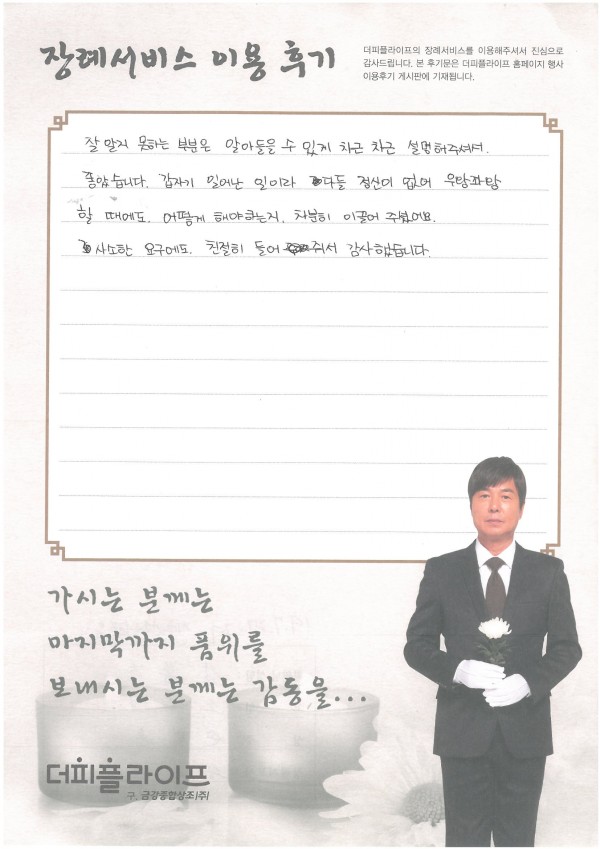 장례서비스 이용 후기
더피플라이프의 장례서비스를 이용해주셔서 진심으로
감사드립니다. 본 후기문은 더피플라이프 홈페이지 행사
이용후기 게시판에 기재됩니다.
잘 알지 못하는 부분은 알아들을 수 있게 차근 차근 설명해주셔서.
좋았습니다. 갑자기 일어난 일이라 다들 정신이 없어 우왕좌왕
할 때에도. 어떻게 해야하는지. 차분히 이끌어 주셨어요.
사소한 요구에도. 친절히 들어 줘서 감사했습니다.
가시는 분께는
마지막까지 품위를
보내시는 분께는 감동을...
더피플라이프
구. 금강종합상조(주)